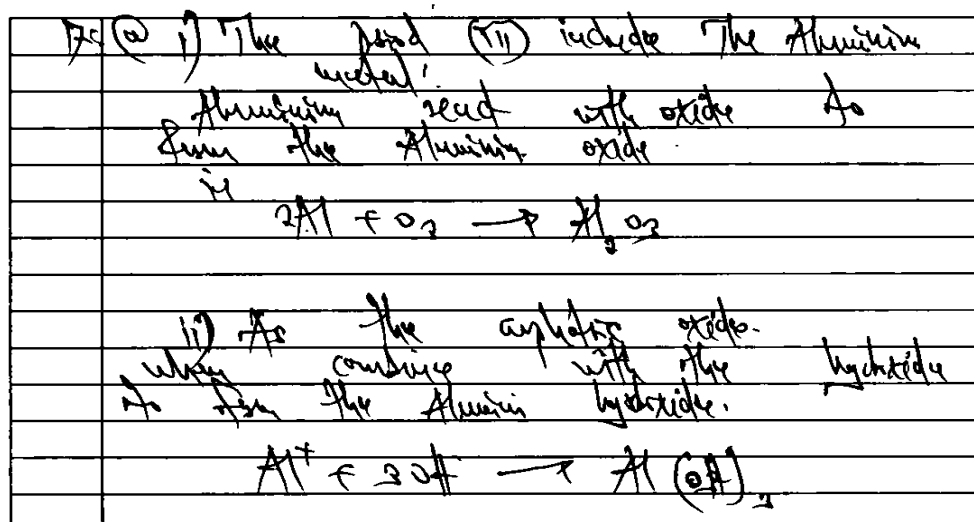 7. (a) i) The period (III) include The Aluminium
metal.
Aluminium react with oxide to
form the Aluminium oxide
ie
2Al + O3 → Al2O3
ii) As the amphoteric oxide.
when combine with the hydroxide
to form the Aluminium hydroxide.
Al+ + 3OH → Al(OH)3